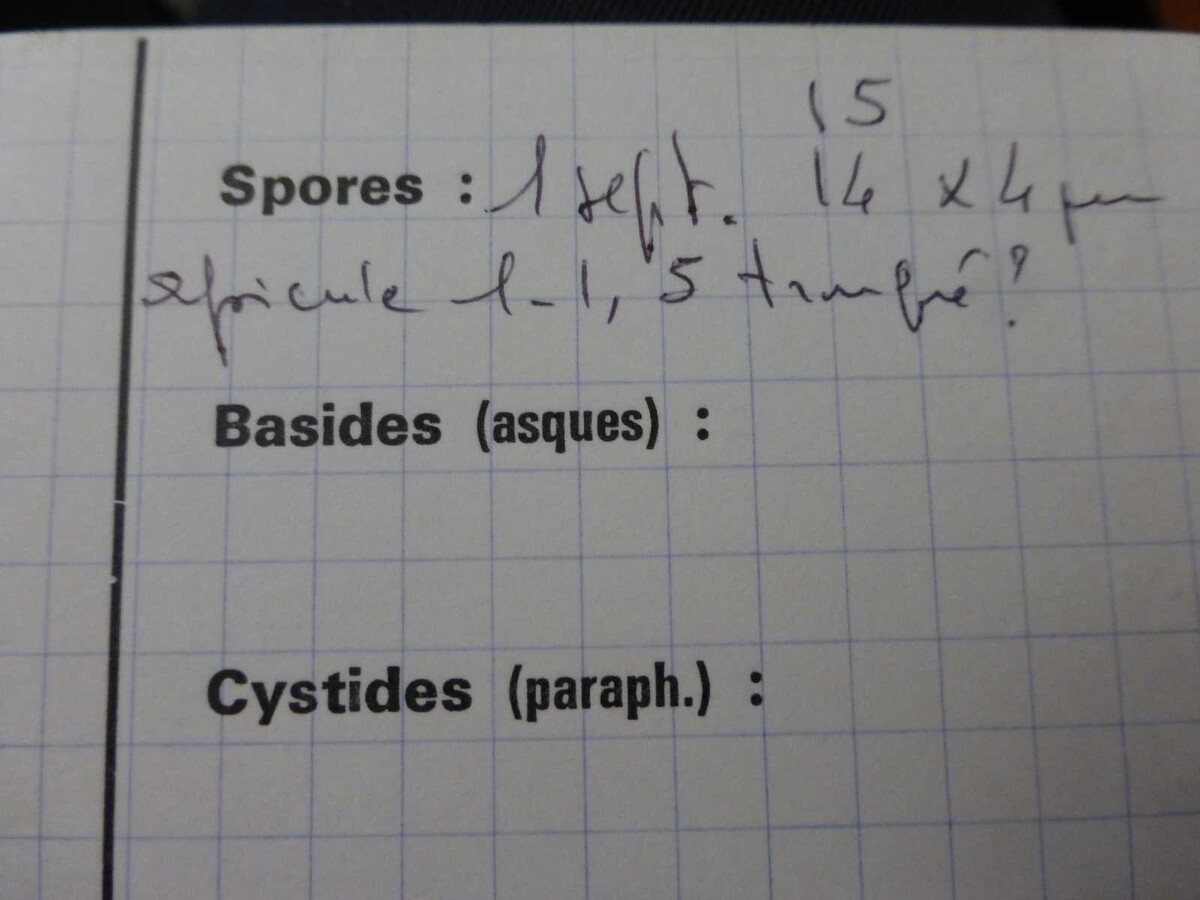 15
Spores : 1 sept. 14 x 4 µm
apicule 1-1,5 tronqué ?
Basides (asques) :
Cystides (paraph.) :